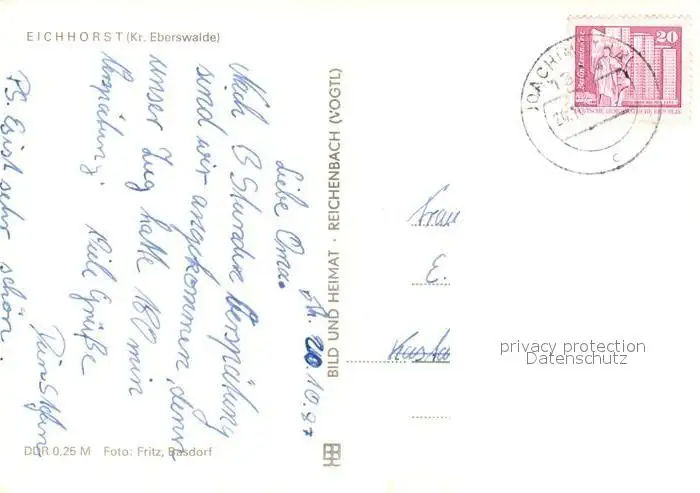 EICHHORST (Kr. Eberswalde)
20.10.87
Liebe Oma.
Nach 3 Stunden Verspätung
sind wir angekommen, denn
unser Zug hatte 180 min
Verspätung. Viele Grüße
Dein Stefan
PS. Es ist sehr schön.
DDR 0,25 M Foto: Fritz, Basdorf
BILD UND HEIMAT · REICHENBACH (VOGTL)
20
JOACHIMSTHAL
c
Frau
E.
privacy protection
Datenschutz